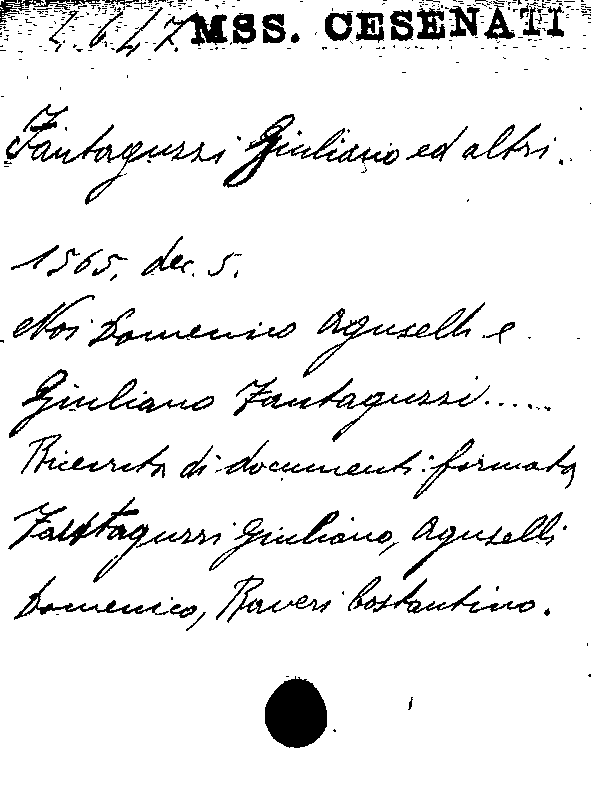 4.6.47. MSS. CESENATI
Fantaguzzi Giuliano ed altri.
1565, dec. 5.
Noi Domenico Aguselli e
Giuliano Fantaguzzi.....
Ricevuta di documenti: formata
Fantaguzzi Giuliano, Aguselli
Domenico, Raveri Costantino.